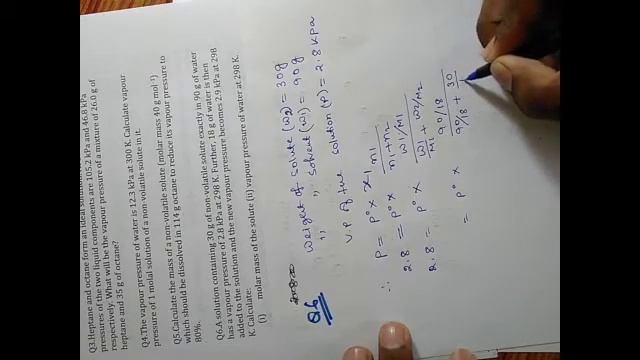 Q3.Heptane and octane form an ideal
pressures of the two liquid components are 105.2 kPa and 46.8 kPa
respectively. What will be the vapour pressure of a mixture of 26.0 g of
heptane and 35 g of octane?
Q4.The vapour pressure of water is 12.3 kPa at 300 K. Calculate vapour
pressure of 1 molal solution of a non-volatile solute in it.
Q5.Calculate the mass of a non-volatile solute (molar mass 40 g mol⁻¹)
which should be dissolved in 114 g octane to reduce its vapour pressure to
80%.
Q6.A solution containing 30 g of non-volatile solute exactly in 90 g of water
has a vapour pressure of 2.8 kPa at 298 K. Further, 18 g of water is then
added to the solution and the new vapour pressure becomes 2.9 kPa at 298
K. Calculate:
(i) molar mass of the solute (ii) vapour pressure of water at 298 K.
Q6
Weight of solute (w2) = 30g
,, ,, Solvent (w1) = 90g
V.P of the solution (P) = 2.8 KPa
∴ P = P° x x1
2.8 = P° x n1/n1+n2
2.8 = P° x w1/M1 / w1/M1 + w2/M2
= P° x 90/18 / 90/18 + 30